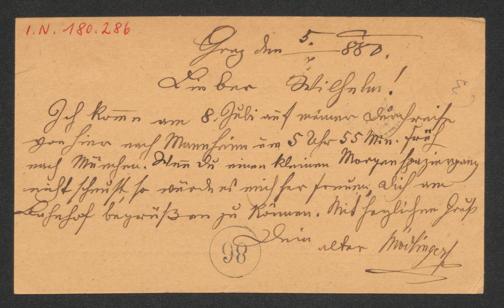 I.N. 180.286
Graz den 5. 880.
Lieber Wilhelm!
Ich komme am 8. Juli auf meiner Durchreise
von hier nach Mannheim um 5 Uhr 55 Min. früh
nach München. Wenn Du einen kleinen Morgenspaziergang
nicht scheust, so würde es mich sehr freuen, Dich am
Bahnhof begrüßen zu können. Mit herzlichem Gruß
Dein alter
98